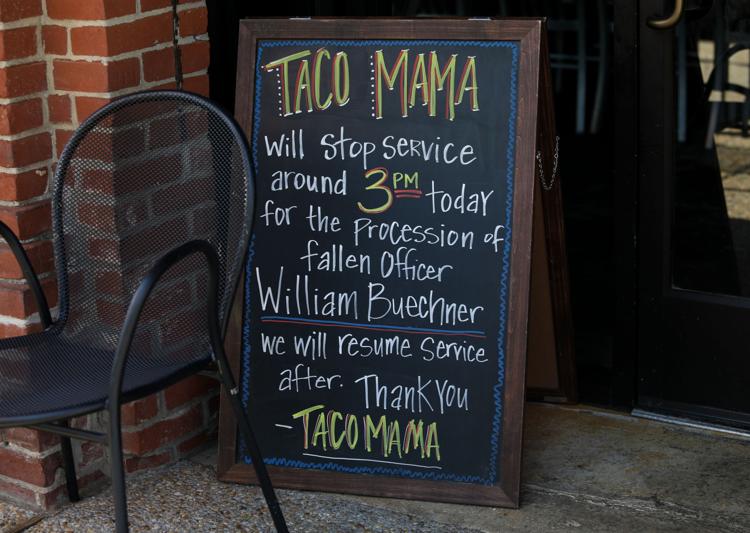 TACO MAMA
will stop service
around 3PM today
for the procession of
fallen Officer
William Buechner
we will resume service
after. Thank You
- TACO MAMA